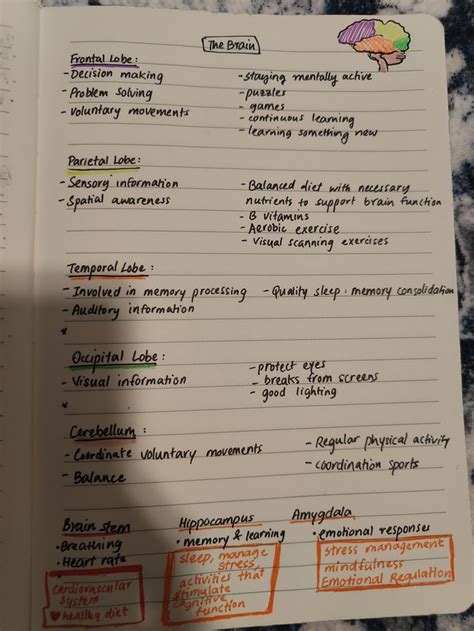 The Brain
Frontal Lobe:
- Decision making
- Problem solving
- Voluntary movements
- staying mentally active
- puzzles
- games
- continuous learning
- learning something new
Parietal Lobe:
- Sensory information
- Spatial awareness
- Balanced diet with necessary
nutrients to support brain function
- B vitamins
- Aerobic exercise
- Visual scanning exercises
Temporal Lobe:
- Involved in memory processing
- Auditory information
- Quality sleep: memory consolidation
Occipital Lobe:
- Visual information
- protect eyes
- breaks from screens
- good lighting
Cerebellum:
- Coordinate voluntary movements
- Balance
- Regular physical activity
- coordination sports
Brain stem
• Breathing
• Heart rate
cardiovascular
system
♥ healthy diet
Hippocampus
• memory & learning
sleep, manage
stress,
activities that
stimulate
cognitive
function
Amygdala
• emotional responses
stress management
mindfulness
Emotional Regulation